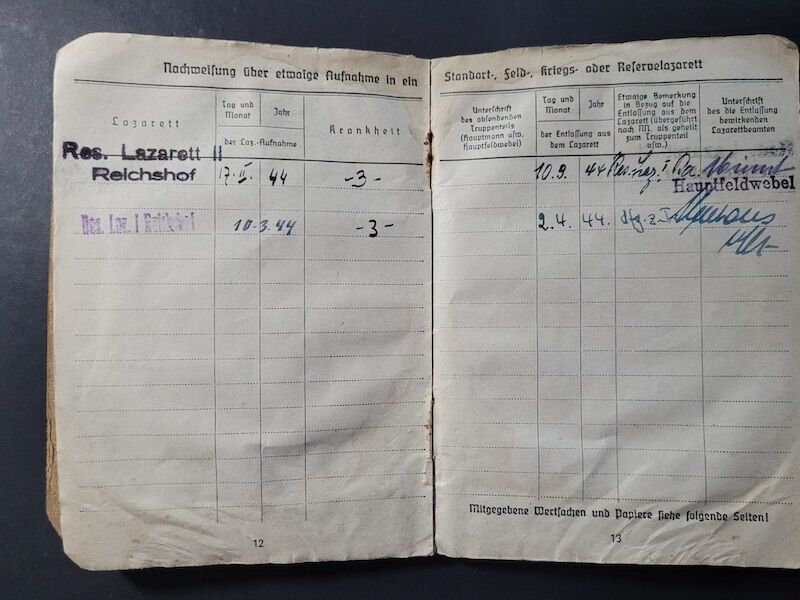 Nachweisung über etwaige Aufnahme in ein
Lazarett
Tag und Monat
Jahr
der Laz.-Aufnahme
Krankheit
Res. Lazarett II
Reichshof
17. II. 44 -3-
Res. Laz. I Reichshof
10.3. 44 -3-
12
Standort-, Feld-, Kriegs- oder Reservelazarett
Unterschrift
des absendenden
Truppenteils
(Hauptmann usw.
Hauptfeldwebel)
Tag und Monat
Jahr
der Entlassung aus
dem Lazarett
Etwaige Bemerkung
in Bezug auf die
Entlassung aus dem
Lazarett (übergeführt
nach NN. als geheilt
zum Truppenteil
usw.)
Unterschrift
des die Entlassung
bewirkenden
Lazarettbeamten
10.9. 44 Res. Laz. I
Hauptfeldwebel
2.4. 44. dfg. z.
Mitgegebene Wertsachen und Papiere siehe folgende Seiten!
13